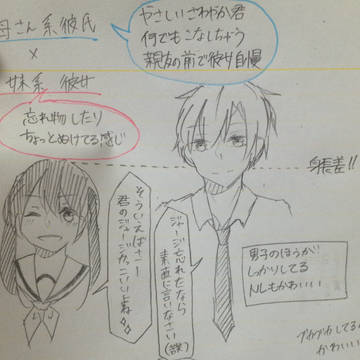 母さん系彼氏
×
妹系 彼女
やさしいさわやか君
何でもこなしちゃう
親友の前で彼女自慢
忘れ物したり
ちょっとぬけてる感じ
身長差!!
ジャージ忘れたなら
素直に言いなさい
(訳)
そういえばさー
君のジャージかっこいいよね
男子のほうが
しっかりしてる
NLもかわいい
ブカブカしてる
かわいい